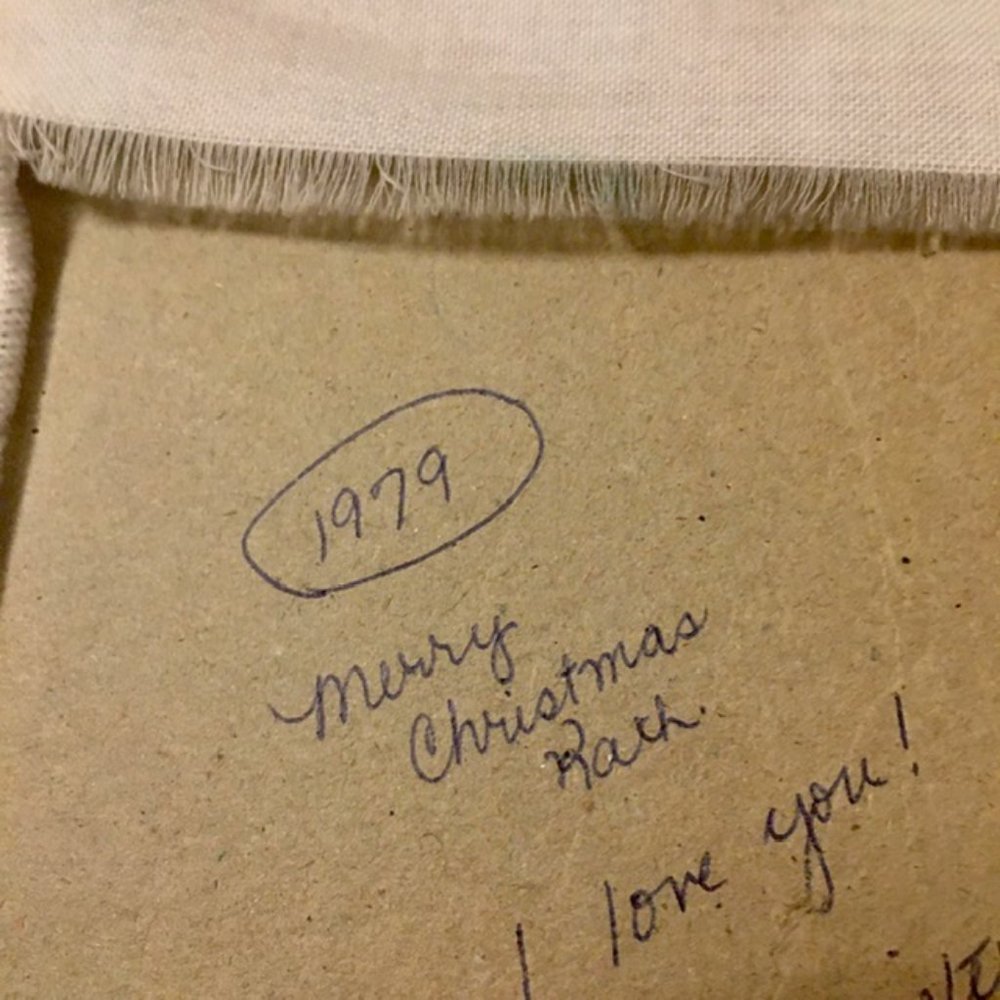 1979
Merry
Christmas
Kath.
I love you!